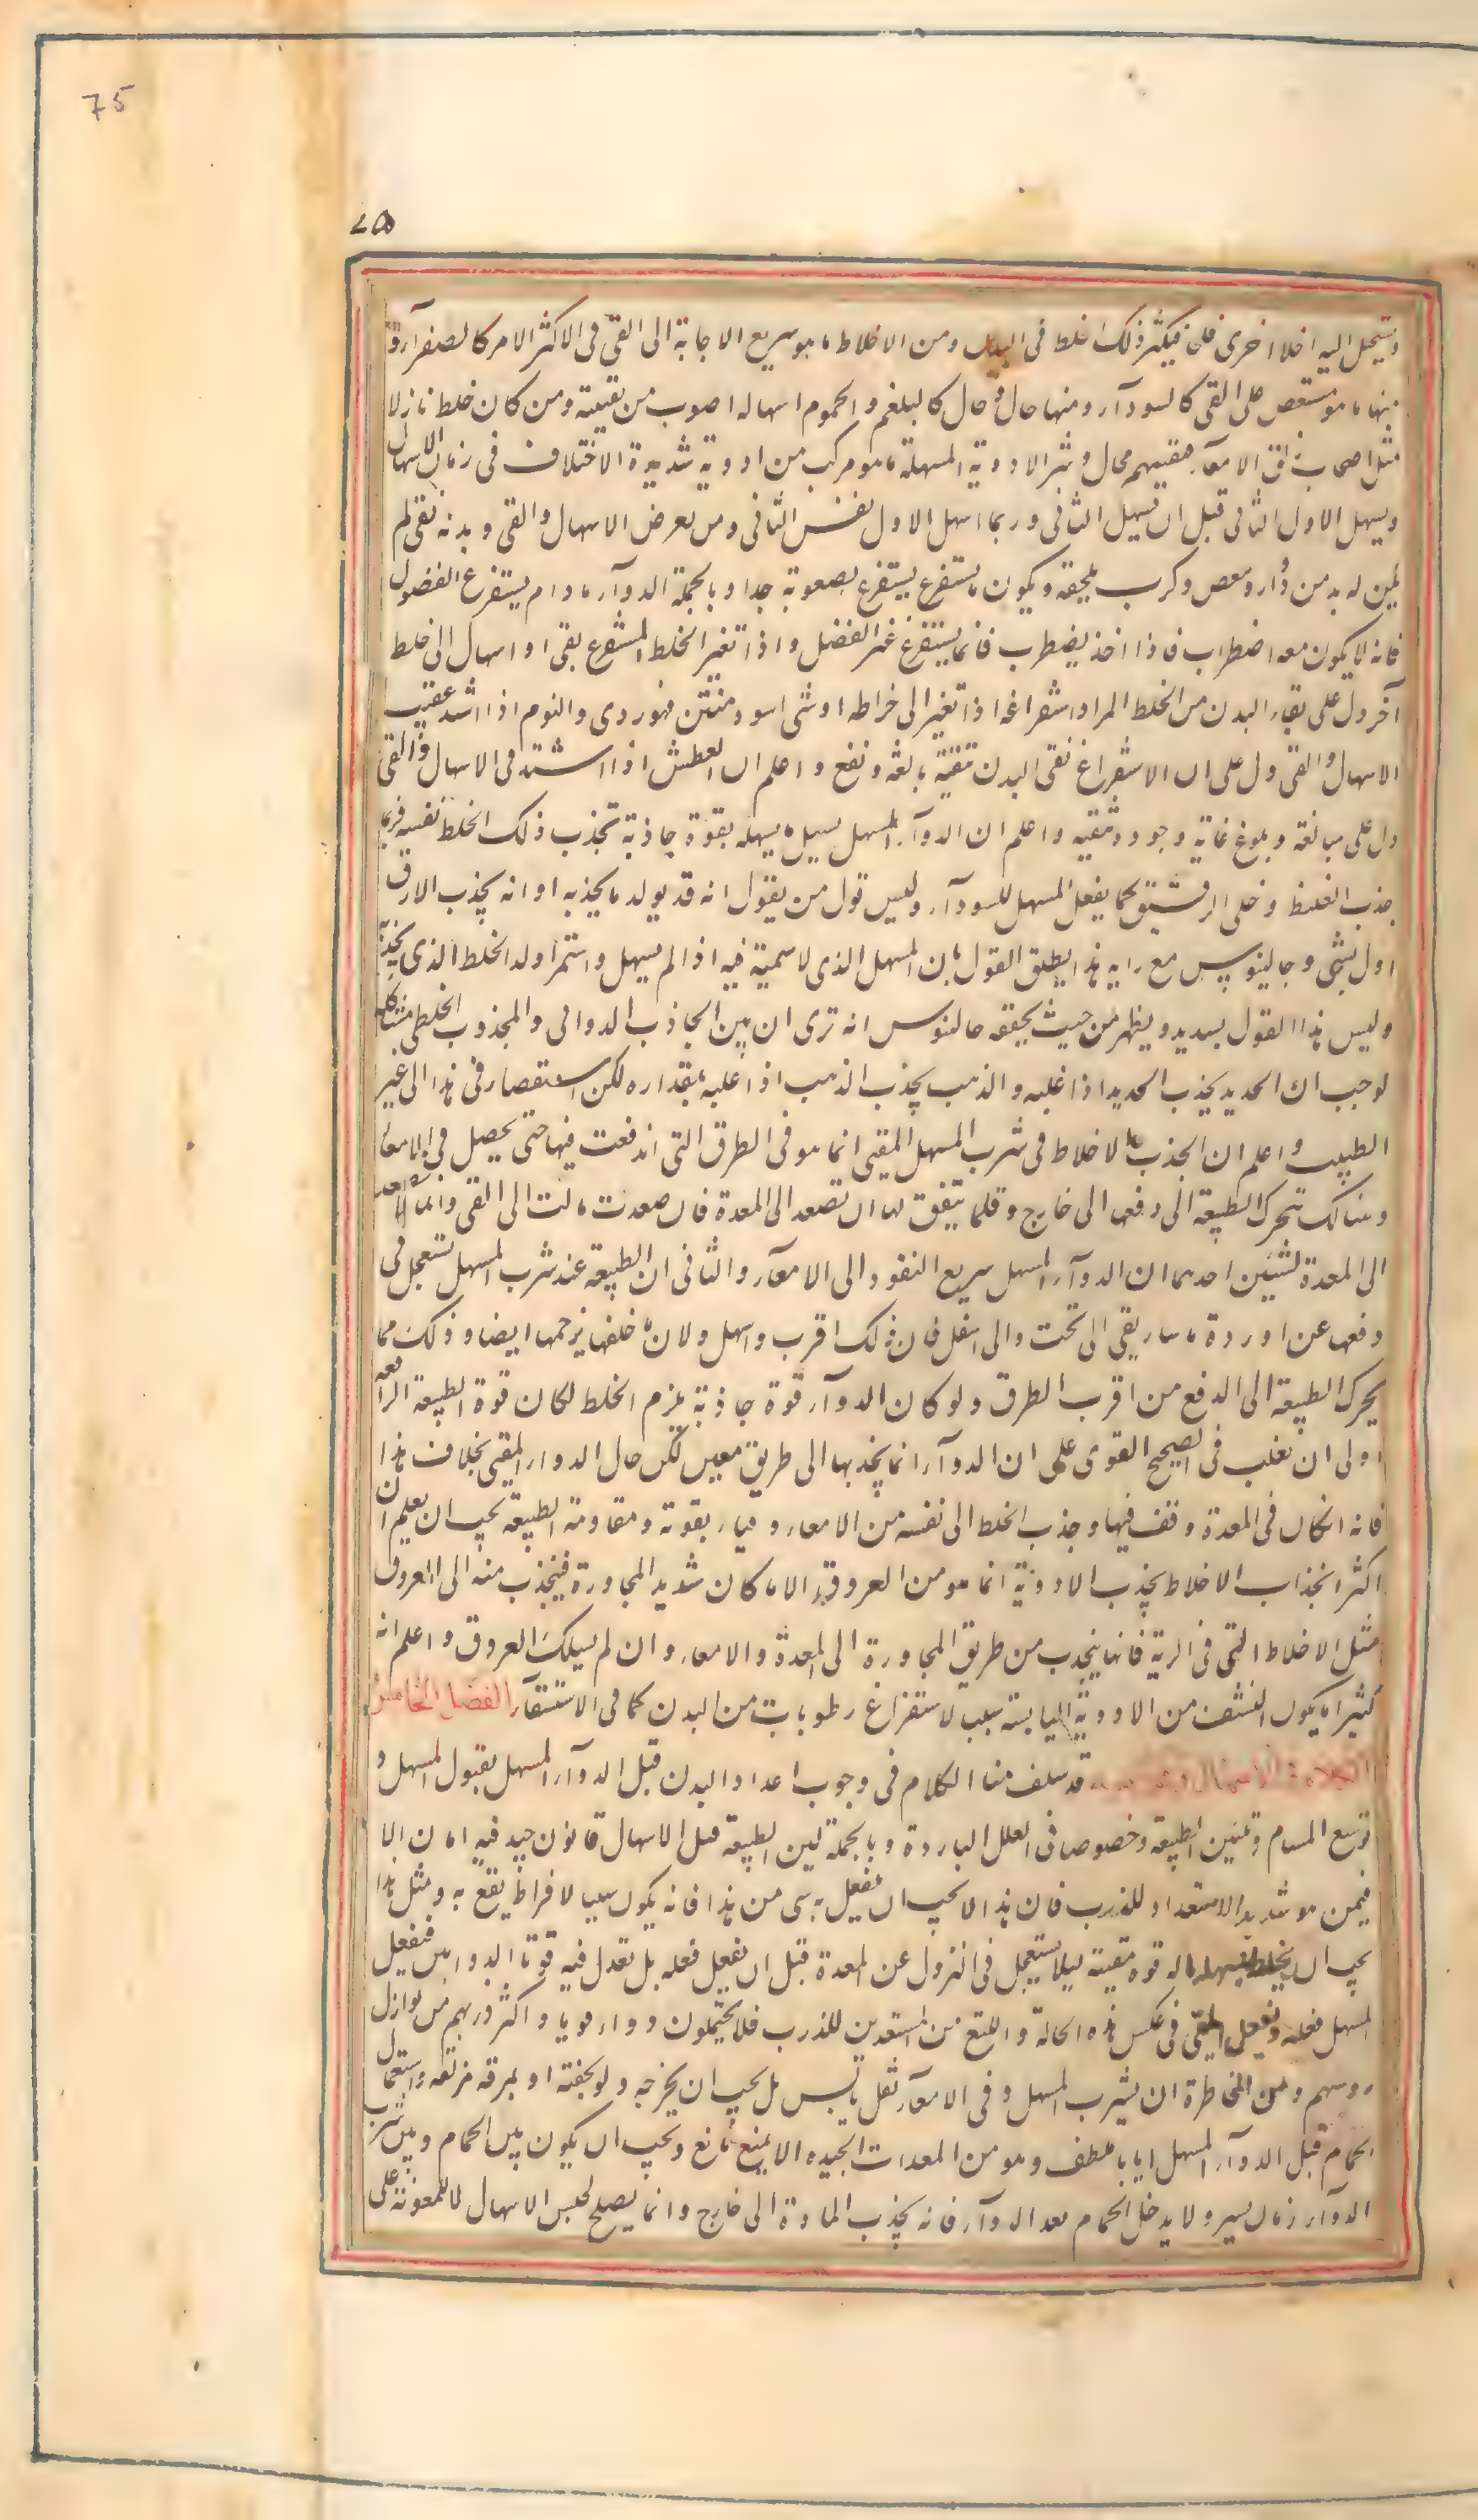 75
٧۵
وتستحيل اليه اخلاط اخرى فيكثر ذلك الخلط فى البدن ومن الاخلاط ما هو سريع الاجابة الى القئ فى الاكثر الامر كالصفرآء و
منها ما هو مستعص على القئ كالسودآء ومنها حال وحال كالبلغم والمحموم اسهاله اصوب من تقيته ومن كان خلطه نازلا
مثل اصحاب زلق الامعآء فتقيتهم محال وشر الادوية المسهلة ما هو مركب من ادوية شديدة الاختلاف فى زمان الاسهال
ويسهل الاول الثانى قبل ان يسهل الثانى وربما اسهل الاول نفس الثانى ومن تعرض الاسهال والقئ وبدنه نقى لم
يكن له بد من دوار ومغص وكرب يلحقه ويكون ما يستفرغ يستفرغ بصعوبة جدا وبالجملة الدوآء ما دام يستفرغ الفضول
فانه لا يكون معه اضطراب فاذا اخذ يضطرب فانما يستفرغ غير الفضل واذا تغير الخلط المستفرغ بقئ او اسهال الى خلط
آخر دل على نقاء البدن من الخلط المراد استفراغه اذا تغير الى خراطه او شئ اسود منتن فهو ردى والنوم اذا اشتد عقيب
الاسهال والقئ دل على ان الاستفراغ نقى البدن تنقية بالغة ونفع واعلم ان العطش اذا اشتد فى الاسهال والقئ
دل على مبالغة وبلوغ غاية وجودة تنقية واعلم ان الدوآء المسهل يسهل ما يسهله بقوة جاذبة تجذب ذلك الخلط نفسه فربما
جذب الغليظ وخلى الرقيق كما يفعل المسهل للسودآء وليس قول من يقول انه قد يولد ما يجذبه او انه يجذب الارق
اول بشئ وجالينوس مع رايه هذا يطلق القول بان المسهل الذى لا سمية فيه اذا لم يسهل واستمرا ولد الخلط الذى يجذبه
وليس هذا القول بسديد ويظهر من حيث يحققه جالينوس انه ترى ان بين الجاذب الدوائى والمجذوب الخلطى مشاكلة
لوجب ان الحديد يجذب الحديد اذا غلبه والذهب يجذب الذهب اذا غلبه بمقداره لكن استقصاء فى هذا الى غير
الطبيب واعلم ان الجذب الاخلاط فى شرب المسهل المقئ انما هو فى الطرق التى اندفعت فيها حتى يحصل فى الامعاء
وهناك تتحرك الطبيعة الى دفعها الى خارج وقلما يتفق لها ان تصعد الى المعدة فان صعدت مالت الى القئ وانما
الى المعدة لشيئين احدهما ان الدوآء المسهل سريع النفوذ الى الامعآء والثانى ان الطبيعة عند شرب المسهل تستعجل فى
دفعها عن اوردة ماساريقى الى تحت والى اسفل فان ذلك اقرب واسهل ولان ما خلفها يزحمها ايضا وذلك مما
يحرك الطبيعة الى الدفع من اقرب الطرق ولو كان الدوآء قوة جاذبة يلزم الخلط لكان قوة الطبيعة الدافعة
اولى ان تغلب فى الصحيح القوى على ان الدوآء انما يجذبها الى طريق معين لكن حال الدواء المقئ بخلاف هذا
فانه ان كان فى المعدة وقف فيها وجذب الخلط الى نفسه من الامعاء وقياء بقوته ومقاومة الطبيعة يجب ان يعلم ان
اكثر انجذاب الاخلاط بجذب الادوية انما هو من العروق الا ما كان شديد المجاورة فينجذب منه الى العروق
مثل الاخلاط التى فى الرية فانها ينجذب من طريق المجاورة الى المعدة والامعاء وان لم يسلك العروق واعلم انه
كثيرا ما يكون النشف من الادوية اليابسة سبب لاستفراغ رطوبات من البدن كما فى الاستسقآء الفصل الخامس
قد سلف منا الكلام فى وجوب اعداد البدن قبل الدوآء المسهل بقبول المسهل و
توسع المسام وتليين الطبيعة وخصوصا فى العلل الباردة وبالجملة لين الطبيعة قبل الاسهال قانون جيد فيه امان الا
فيمن هو شديد الاستعداد للذرب فان هذا لا يجب ان يفعل به شئ من هذا فانه يكون سببا لافراط يقع به ومثل هذا
يجب ان يخلط بمسهله ما له قوة مقيئة ليلا يستعجل فى النزول عن المعدة قبل ان يفعل فعله بل تعدل فيه قوتا الدواءين فيفعل
المسهل فعله ويفعل المقئ فى عكس هذه الحالة واللثغ من المستعدين للذرب فلا يحتملون دواء قويا واكثر ذربهم من نوازل
روسهم ومن المخاطرة ان يشرب المسهل وفى الامعآء ثفل يابس بل يجب ان يخرجه ولو بحقنة او بمرقة مزلقة واستعمال
الحمام قبل الدوآء المسهل اياما ملطف وهو من المعدات الجيدة الا ان يمنع مانع ويجب ان يكون بين الحمام وبين شرب
الدوآء زمان يسير ولا يدخل الحمام بعد الدوآء فانه يجذب المادة الى خارج وانما يصلح لحبس الاسهال لا للمعونة على